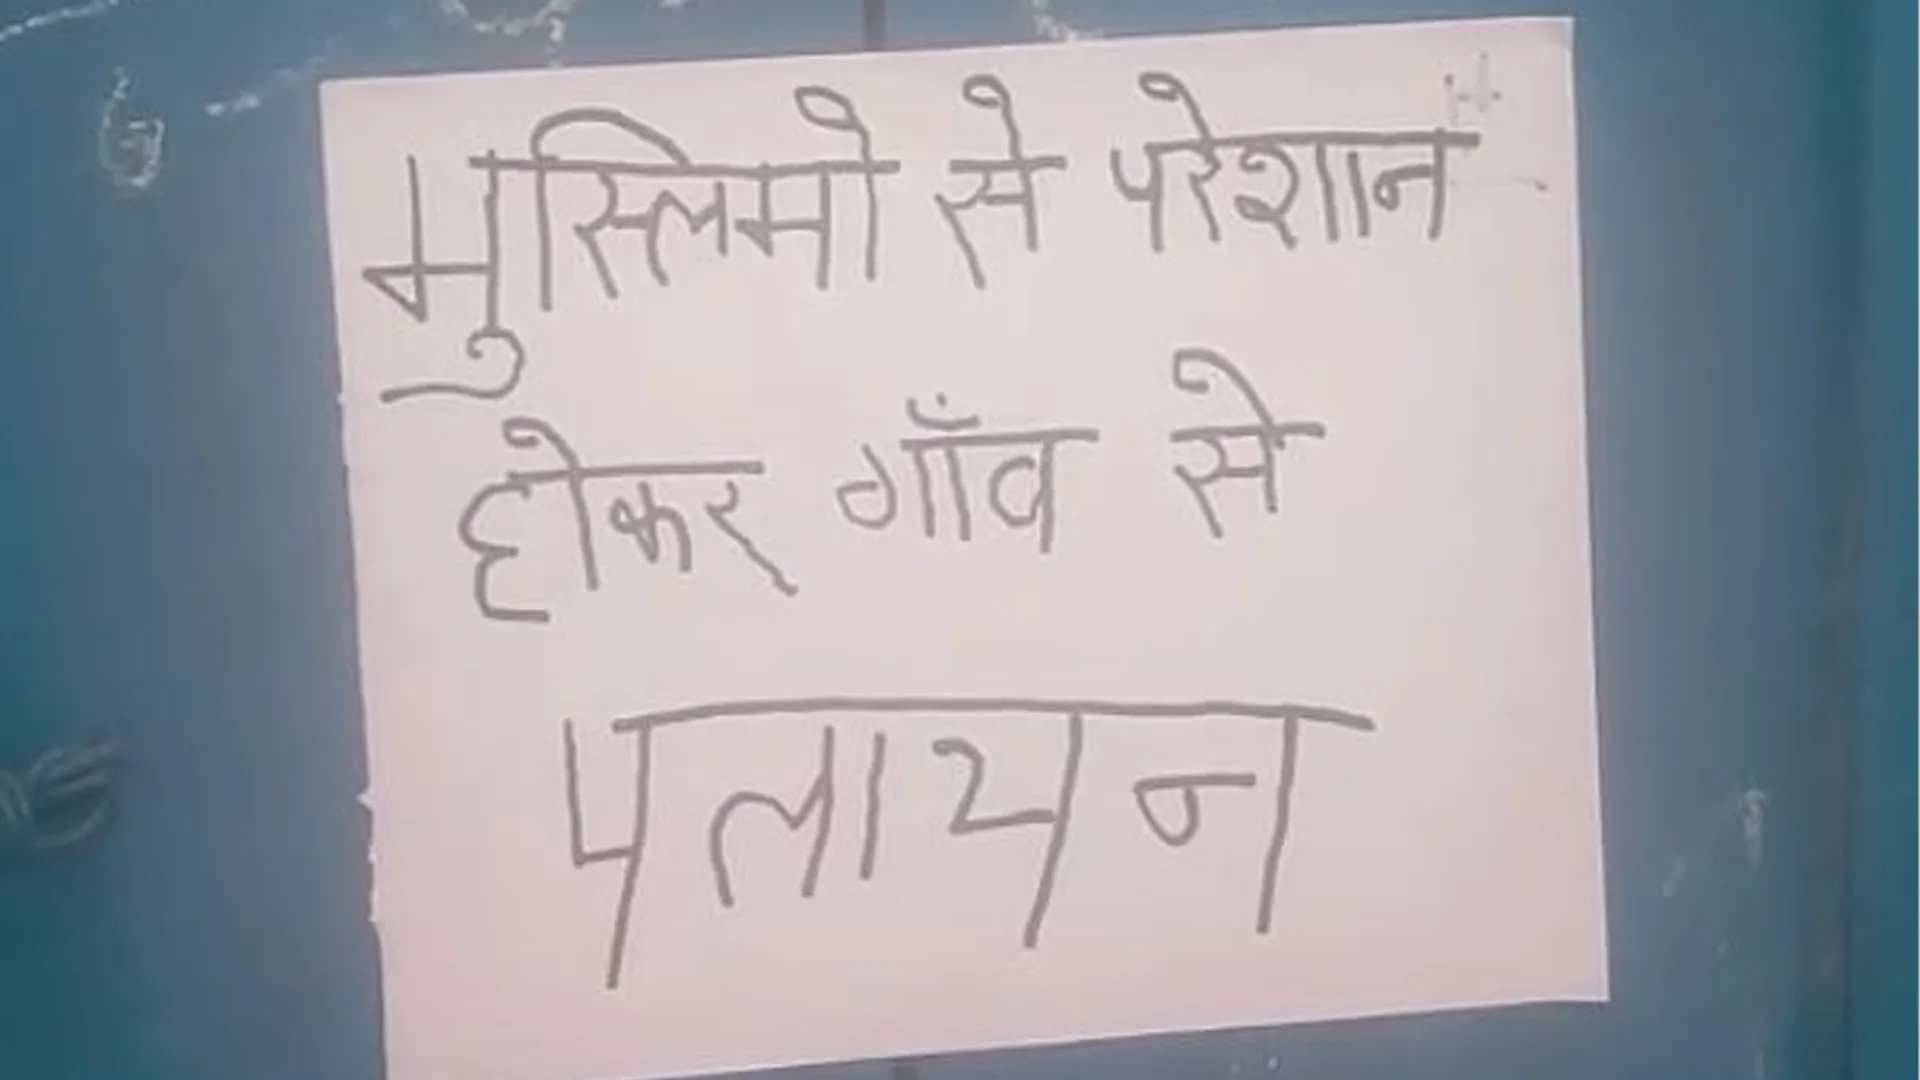 मुस्लिमो से परेशान
होकर गाँव से
पलायन